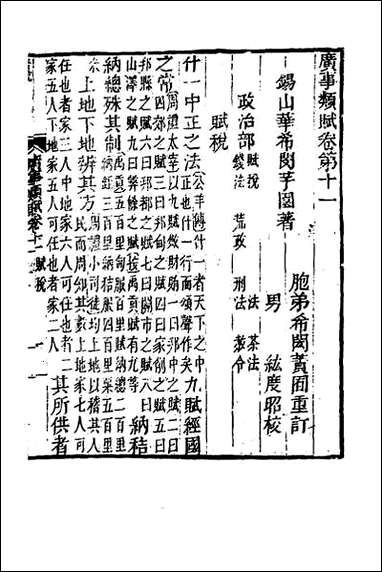 廣事類賦卷第十一
錫山華希閔芋園著
胞弟希閎
重訂
男 紘度昭校
政治部 賦稅 法 茶法
錢法 荒政 刑法
賦稅
什一中正之法 公羊傳什一者天下之中正也什一行而頌聲作矣 九賦經國
之常 周禮太宰以九賦斂財賄一曰邦中之賦二曰四郊之賦三曰邦甸之賦四曰家削之賦五曰
邦縣之賦六曰邦都之賦七曰關市之賦八曰山澤之賦九曰幣餘之賦 禹貢賦有九等 納秸
納總殊其制 禹貢五百里甸服百里賦納總二百里納銍三百里納秸服四百里粟五百里
米 上地下地辨其方 周禮小司徒乃均土地以稽其人民而周知其數上地家七人可
任也者家三人中地家六人可任也者二家五人下地家五人可任也者家二人 其所供者
廣事類賦卷十一 賦稅